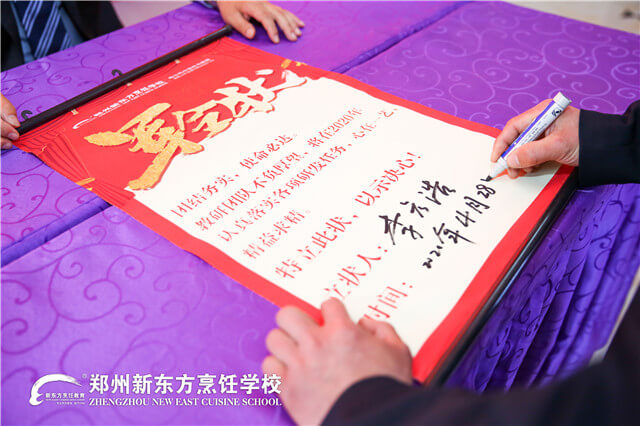 郑州新东方烹饪学校
军令状
团结务实,使命必达。
教研团队不负厚望,将在2020年
认真落实各项研发任务、心在一之、
精益求精。
特立此状、以示决心!
立状人:李元浩
时间:2020年4月28
新东方烹饪教育
郑州新东方烹饪学校
ZHENGZHOU NEW EAST CUISINE SCHOOL